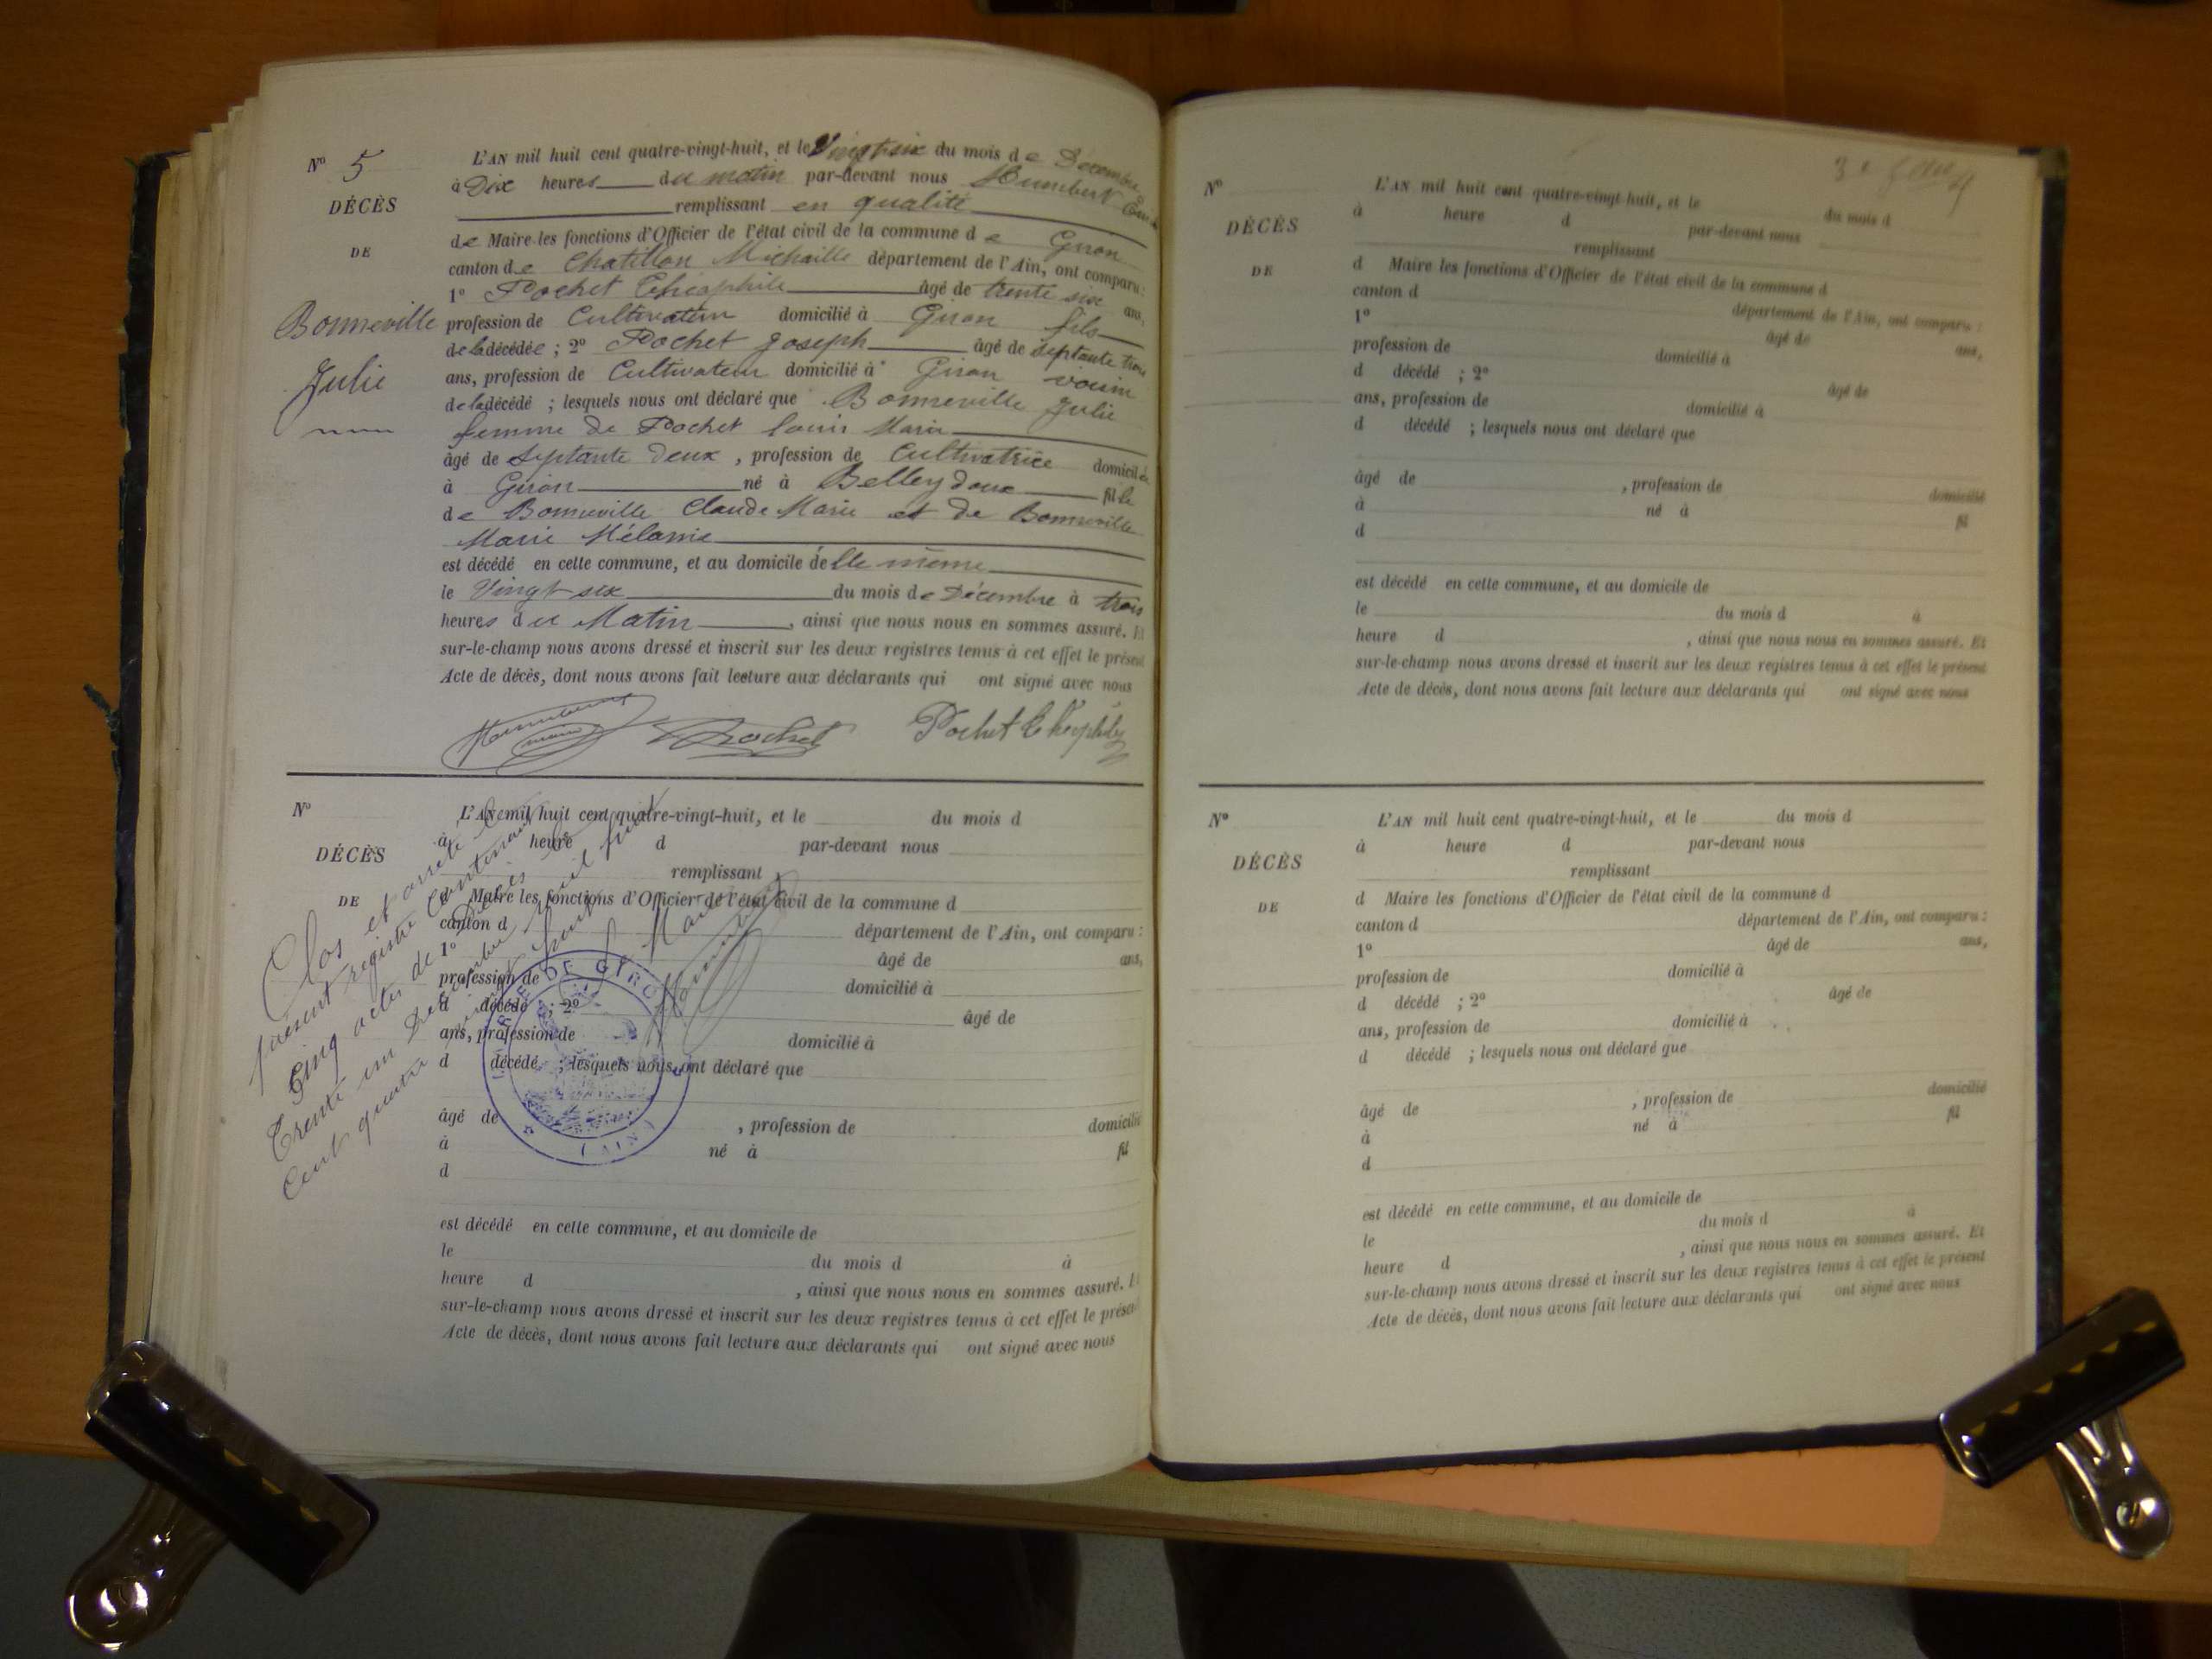 N° 5
DÉCÈS
DE
Bonneville
Julie
L'AN mil huit cent quatre-vingt-huit, et le Vingt six du mois de Décembre
à Dix heures du matin par-devant nous Humbert
remplissant en qualité
de Maire les fonctions d'Officier de l'état civil de la commune de Giron
canton de Chatillon Michaille département de l'Ain, ont comparu :
1° Pochet Théophile âgé de trente six ans,
profession de Cultivateur domicilié à Giron fils
de la décédée ; 2° Pochet Joseph âgé de septante trois
ans, profession de Cultivateur domicilié à Giron voisin
de la décédé ; lesquels nous ont déclaré que Bonneville Julie
femme de Pochet Louis Marie
âgé de septante deux , profession de Cultivatrice domicilié
à Giron né à Belleydoux fille
de Bonneville Claude Marie et de Bonneville
Marie Mélanie
est décédé en cette commune, et au domicile d'elle même
le Vingt six du mois de Décembre à trois
heures du Matin , ainsi que nous nous en sommes assuré. Et
sur-le-champ nous avons dressé et inscrit sur les deux registres tenus à cet effet le présent
Acte de décès, dont nous avons fait lecture aux déclarants qui ont signé avec nous
Humbert maire Pochet Pochet Théophile
N°
DÉCÈS
DE
L'AN mil huit cent quatre-vingt-huit, et le du mois d
à heure d par-devant nous
remplissant
d Maire les fonctions d'Officier de l'état civil de la commune d
canton d département de l'Ain, ont comparu :
1° âgé de ans,
profession de domicilié à
d décédé ; 2° âgé de
ans, profession de domicilié à
d décédé ; lesquels nous ont déclaré que
âgé de , profession de domicilié
à né à fil
d
est décédé en cette commune, et au domicile de
le du mois d à
heure d , ainsi que nous nous en sommes assuré. Et
sur-le-champ nous avons dressé et inscrit sur les deux registres tenus à cet effet le présent
Acte de décès, dont nous avons fait lecture aux déclarants qui ont signé avec nous
Clos et arrêté le
présent registre contenant
Cinq actes de Décès le
Trente un Décembre mil huit
Cent quatre vingt huit
Le Maire
Humbert
MAIRIE DE GIRON
(AIN)
N°
DÉCÈS
DE
L'AN mil huit cent quatre-vingt-huit, et le du mois d
à heure d par-devant nous
remplissant
d Maire les fonctions d'Officier de l'état civil de la commune d
canton d département de l'Ain, ont comparu :
1° âgé de ans,
profession de domicilié à
d décédé ; 2° âgé de
ans, profession de domicilié à
d décédé ; lesquels nous ont déclaré que
âgé de , profession de domicilié
à né à fil
d
est décédé en cette commune, et au domicile de
le du mois d à
heure d , ainsi que nous nous en sommes assuré. Et
sur-le-champ nous avons dressé et inscrit sur les deux registres tenus à cet effet le présent
Acte de décès, dont nous avons fait lecture aux déclarants qui ont signé avec nous
N°
DÉCÈS
DE
L'AN mil huit cent quatre-vingt-huit, et le du mois d
à heure d par-devant nous
remplissant
d Maire les fonctions d'Officier de l'état civil de la commune d
canton d département de l'Ain, ont comparu :
1° âgé de ans,
profession de domicilié à
d décédé ; 2° âgé de
ans, profession de domicilié à
d décédé ; lesquels nous ont déclaré que
âgé de , profession de domicilié
à né à fil
d
est décédé en cette commune, et au domicile de
le du mois d à
heure d , ainsi que nous nous en sommes assuré. Et
sur-le-champ nous avons dressé et inscrit sur les deux registres tenus à cet effet le présent
Acte de décès, dont nous avons fait lecture aux déclarants qui ont signé avec nous